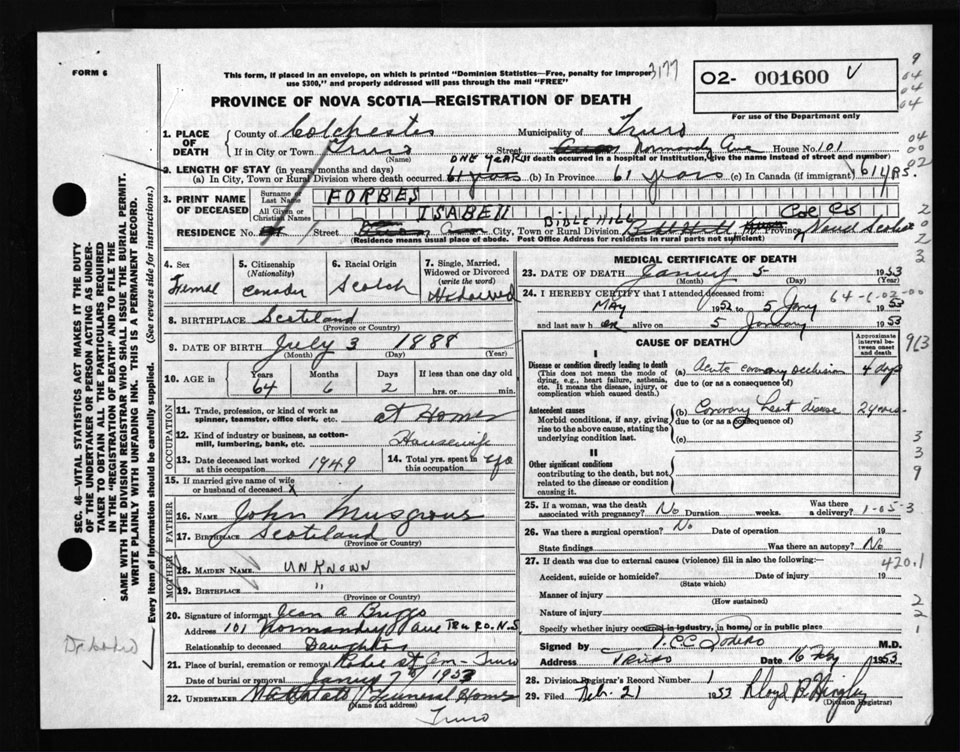 FORM 6
This form, if placed in an envelope, on which is printed "Dominion Statistics—Free, penalty for improper
use $300," and properly addressed will pass through the mail "FREE"
3177
O2- 001600
For use of the Department only
PROVINCE OF NOVA SCOTIA—REGISTRATION OF DEATH
1. PLACE OF DEATH
County of Colchester Municipality of Truro
If in City or Town Truro Street Normandy Ave House No. 101
(Name) (If death occurred in a hospital or institution, give the name instead of street and number)
ONE YEAR
2. LENGTH OF STAY (in years, months and days)
(a) In City, Town or Rural Division where death occurred 61 years (b) In Province 61 years (c) In Canada (if immigrant) 61 YRS.
3. PRINT NAME OF DECEASED
Surname or Last Name FORBES
All Given or Christian Names ISABELL
BIBLE HILL Col Co
RESIDENCE No. Street City, Town or Rural Division Province Nova Scotia
(Residence means usual place of abode. Post Office Address for residents in rural parts not sufficient)
4. Sex Femal
5. Citizenship (Nationality)
6. Racial Origin Scotch
7. Single, Married, Widowed or Divorced (write the word)
8. BIRTHPLACE Scotland
(Province or Country)
9. DATE OF BIRTH July 3 1888
(Month) (Day) (Year)
10. AGE in Years 64 Months 6 Days 2 If less than one day old hrs. or min.
OCCUPATION
11. Trade, profession, or kind of work as spinner, teamster, office clerk, etc. at Home
12. Kind of industry or business, as cotton-mill, lumbering, bank, etc. Housewife
13. Date deceased last worked at this occupation 1949
14. Total yrs. spent in this occupation 40
15. If married give name of wife or husband of deceased X
FATHER
16. NAME John Musgrove
17. BIRTHPLACE Scotland
(Province or Country)
MOTHER
18. MAIDEN NAME UNKNOWN
19. BIRTHPLACE "
(Province or Country)
20. Signature of informant Jean A Briggs
Address 101 Normandy ave TRURO. N.S.
Relationship to deceased Daughter
21. Place of burial, cremation or removal Robie St Cem - Truro
Date of burial or removal January 7th 1953
22. UNDERTAKER Funeral Home
(Name and address)
Truro
MEDICAL CERTIFICATE OF DEATH
23. DATE OF DEATH 5 1953
(Month) (Day)
24. I HEREBY CERTIFY that I attended deceased from:
64-6-02-00
MAY 1952 to 5 Jany 1953
and last saw her alive on 5 January 1953
CAUSE OF DEATH
Approximate interval between onset and death
I
Disease or condition directly leading to death
(This does not mean the mode of dying, e.g., heart failure, asthenia, etc. It means the disease, injury, or complication which caused death.)
(a) Acute coronary occlusion 4 days
due to (or as a consequence of)
Antecedent causes
Morbid conditions, if any, giving rise to the above cause, stating the underlying condition last.
(b) Coronary heart disease 2 years
due to (or as a consequence of)
(c)
II
Other significant conditions
contributing to the death, but not related to the disease or condition causing it.
25. If a woman, was the death associated with pregnancy? No Duration weeks. Was there a delivery?
1-05-3
26. Was there a surgical operation? No Date of operation 19
State findings Was there an autopsy? No
27. If death was due to external causes (violence) fill in also the following:—
420.1
Accident, suicide or homicide? Date of injury 19
(State which)
Manner of injury
(How sustained)
Nature of injury
Specify whether injury occurred in industry, in home, or in public place
Signed by M.D.
Address TRURO Date 16 Feby 1953
28. Division Registrar's Record Number 1
29. Filed Feb. 21 1953
(Division Registrar)
SEC. 46—VITAL STATISTICS ACT MAKES IT THE DUTY
OF THE UNDERTAKER OR PERSON ACTING AS UNDER-
TAKER TO OBTAIN ALL THE PARTICULARS REQUIRED
IN THE "REGISTRATION OF DEATH" AND TO FILE THE
SAME WITH THE DIVISION REGISTRAR WHO SHALL ISSUE THE BURIAL PERMIT.
WRITE PLAINLY WITH UNFADING INK. THIS IS A PERMANENT RECORD.
Every item of Information should be carefully supplied. (See reverse side for instructions.)